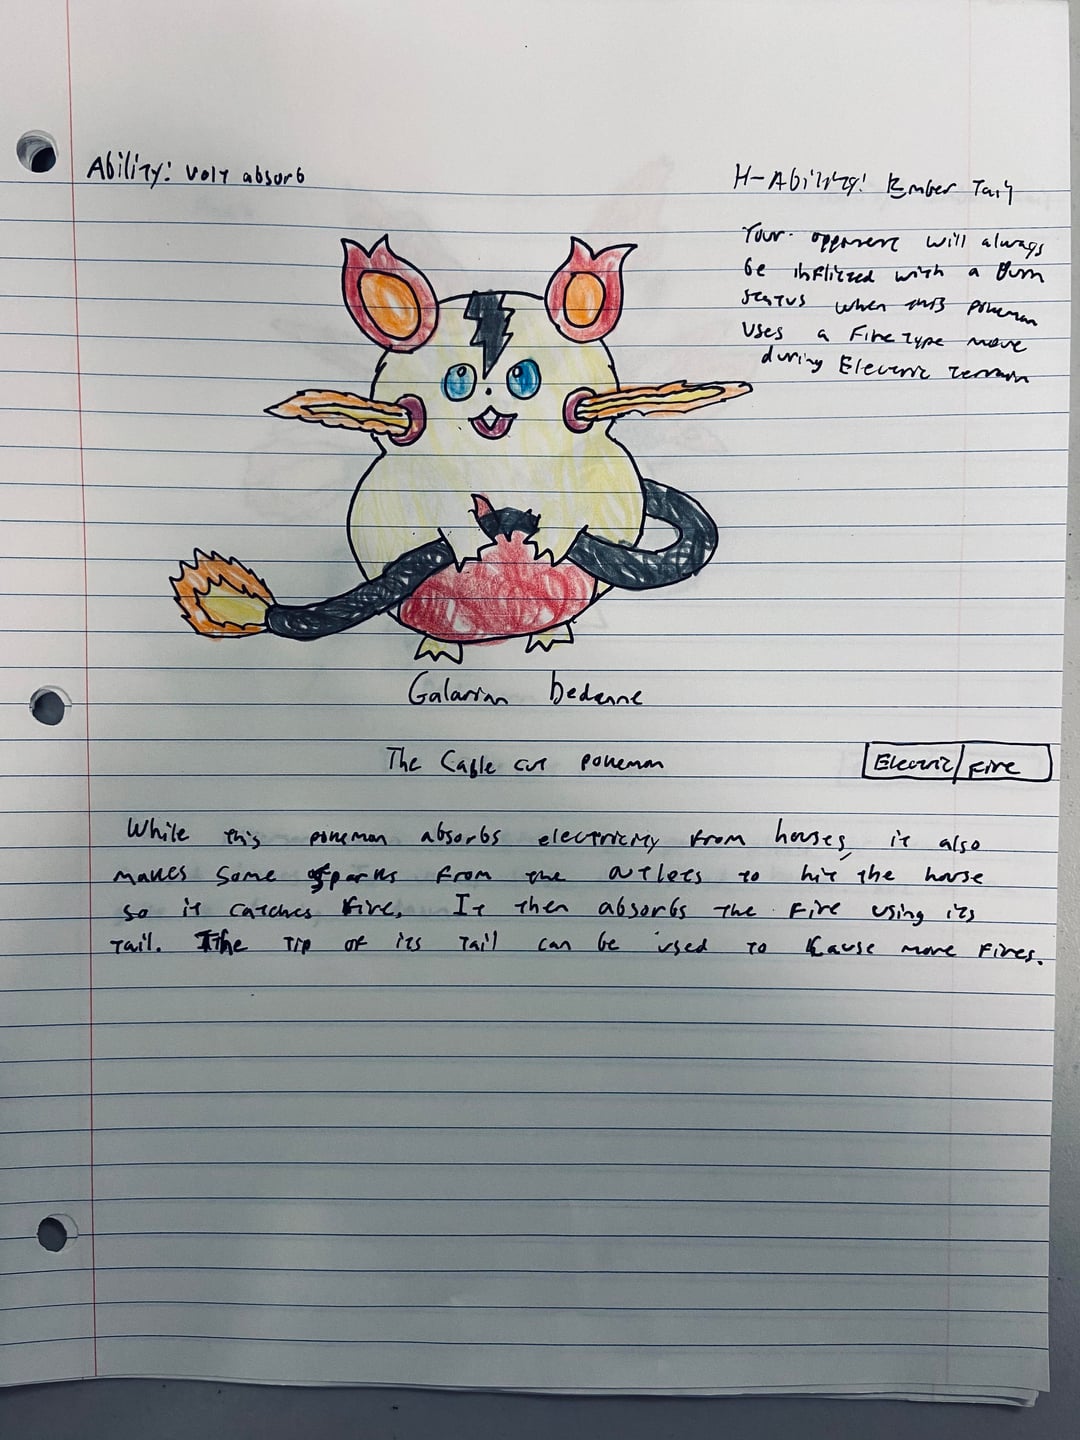 Ability: Volt absorb
H-Ability: Ember Tail
Your opponent will always
be inflicted with a Burn
status when this pokemon
uses a Fire Type move
during Electric terrain
Galarian Dedenne
The Cable cut pokemon
Electric/Fire
While this pokemon absorbs electricity from houses, it also
makes some sparks from the outlets to hit the house
so it catches fire. It then absorbs the fire using its
tail. The tip of its tail can be used to cause more fires.